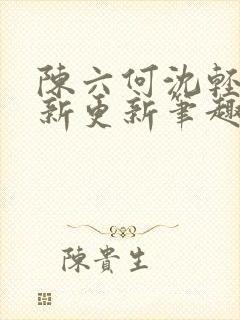 陳六何沈輕
新更新筆趣
陳貴生